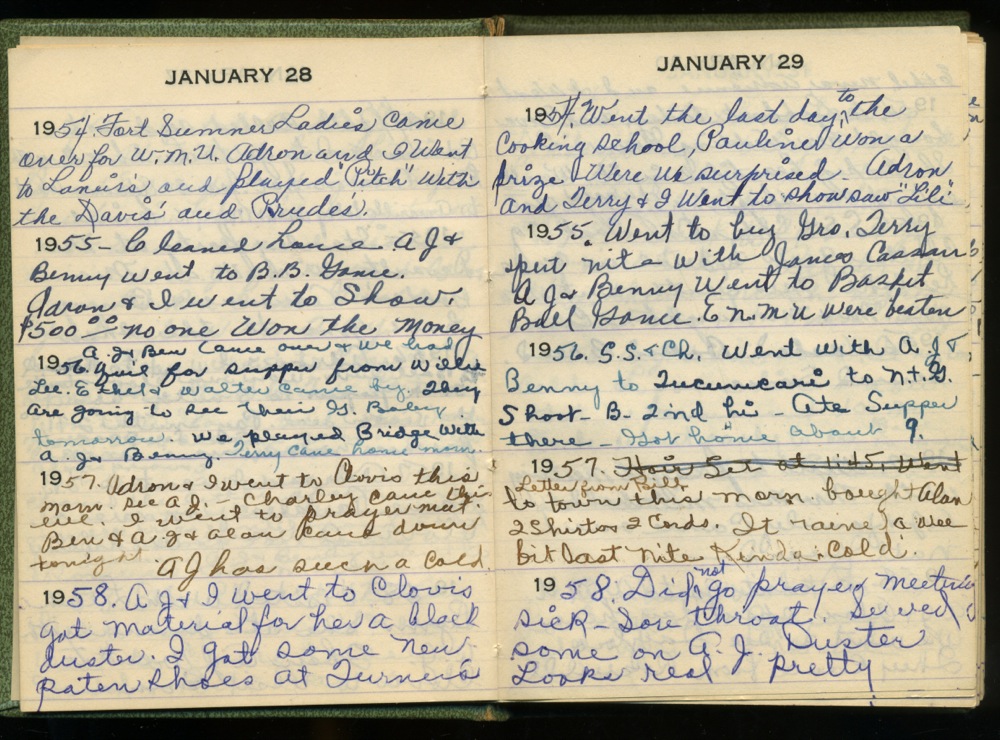 JANUARY 28
1954. Fort Sumner Ladies came
over for W.M.U. Adron and I Went
to Lanier's and played "Pitch" With
the Davis' and Prudes.
1955- Cleaned house A J &
Benny went to B.B. Game.
Adron & I went to Show.
$500 00 - no one Won the Money
A. J & Ben came over & we had
1956. quil for supper from Willie
Lee. Ethel & Walter came by. They
are going to see their G. Baby
tomorrow. We played Bridge With
A. J & Benny. Terry came home morn.
1957. Adron & I went to Clovis this
morn. See A J. - Charley came this
eve. I went to prayer mat.
Ben & A. J & Alan came down
tonight A J has such a cold.
1958. A J & I went to Clovis
got material for her a black
duster. I got some new
paten shoes at Turner's
JANUARY 29
1954. Went the last day to the
Cooking School, Pauline Won a
prize Were we surprised - Adron
and Terry & I Went to show saw "Lili"
1955. Went to buy Gro. Terry
spent nite with James
A J & Benny Went to Basket
Ball Game. E N.M U Were beaten
1956. S.S. & Ch. Went With A. J &
Benny to Tucumcari to
Shoot- B- 2nd hi - Ate Supper
there - Got home about 9.
1957. Hair Set at 11:45, Went
Letter from Bill
to town this morn bought Alan
2 Shirts & 2 Cords. It raine a wee
bit last nite Kinda cold.
1958. Did not go prayer meeting
sick - Sore throat. Sewed
some on A. J. Duster
Looks real pretty